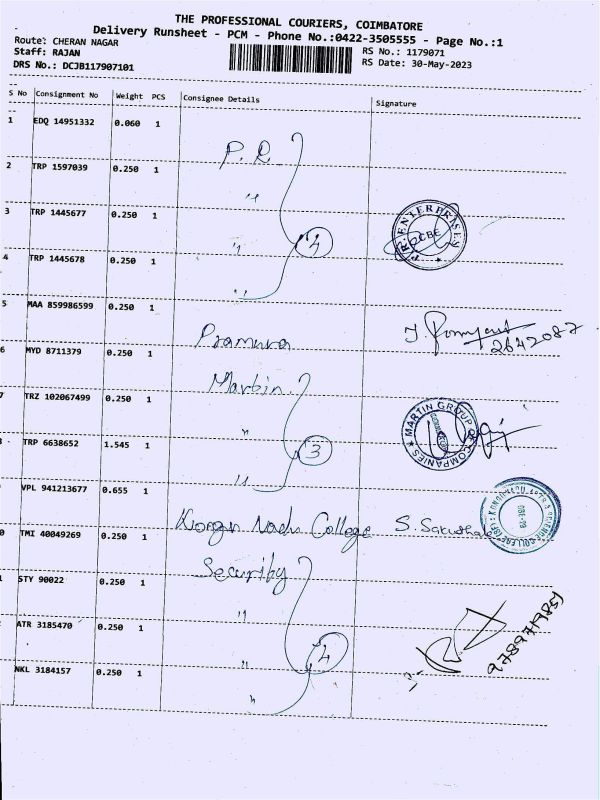 THE PROFESSIONAL COURIERS, COIMBATORE
Delivery Runsheet - PCM - Phone No.:0422-3505555 - Page No.:1
Route: CHERAN NAGAR
Staff: RAJAN
DRS No.: DCJB117907101
RS No.: 1179071
RS Date: 30-May-2023
S No Consignment No Weight PCS Consignee Details Signature
1 EDQ 14951332 0.060 1 P.R.
2 TRP 1597039 0.250 1 "
3 TRP 1445677 0.250 1 " 4 P.R. ENTERPRISES CBE
4 TRP 1445678 0.250 1 "
5 MAA 859986599 0.250 1 Pramura 2642087
6 MYD 8711379 0.250 1 Martin
7 TRZ 102067499 0.250 1 " 3 MARTIN GROUP OF COMPANIES
8 TRP 6638652 1.545 1 "
VPL 941213677 0.655 1 Kongu Nadu College S.
0 TMI 40049269 0.250 1 Security
STY 90022 0.250 1 "
ATR 3185470 0.250 1 " 4 9789719851
NKL 3184157 0.250 1 "